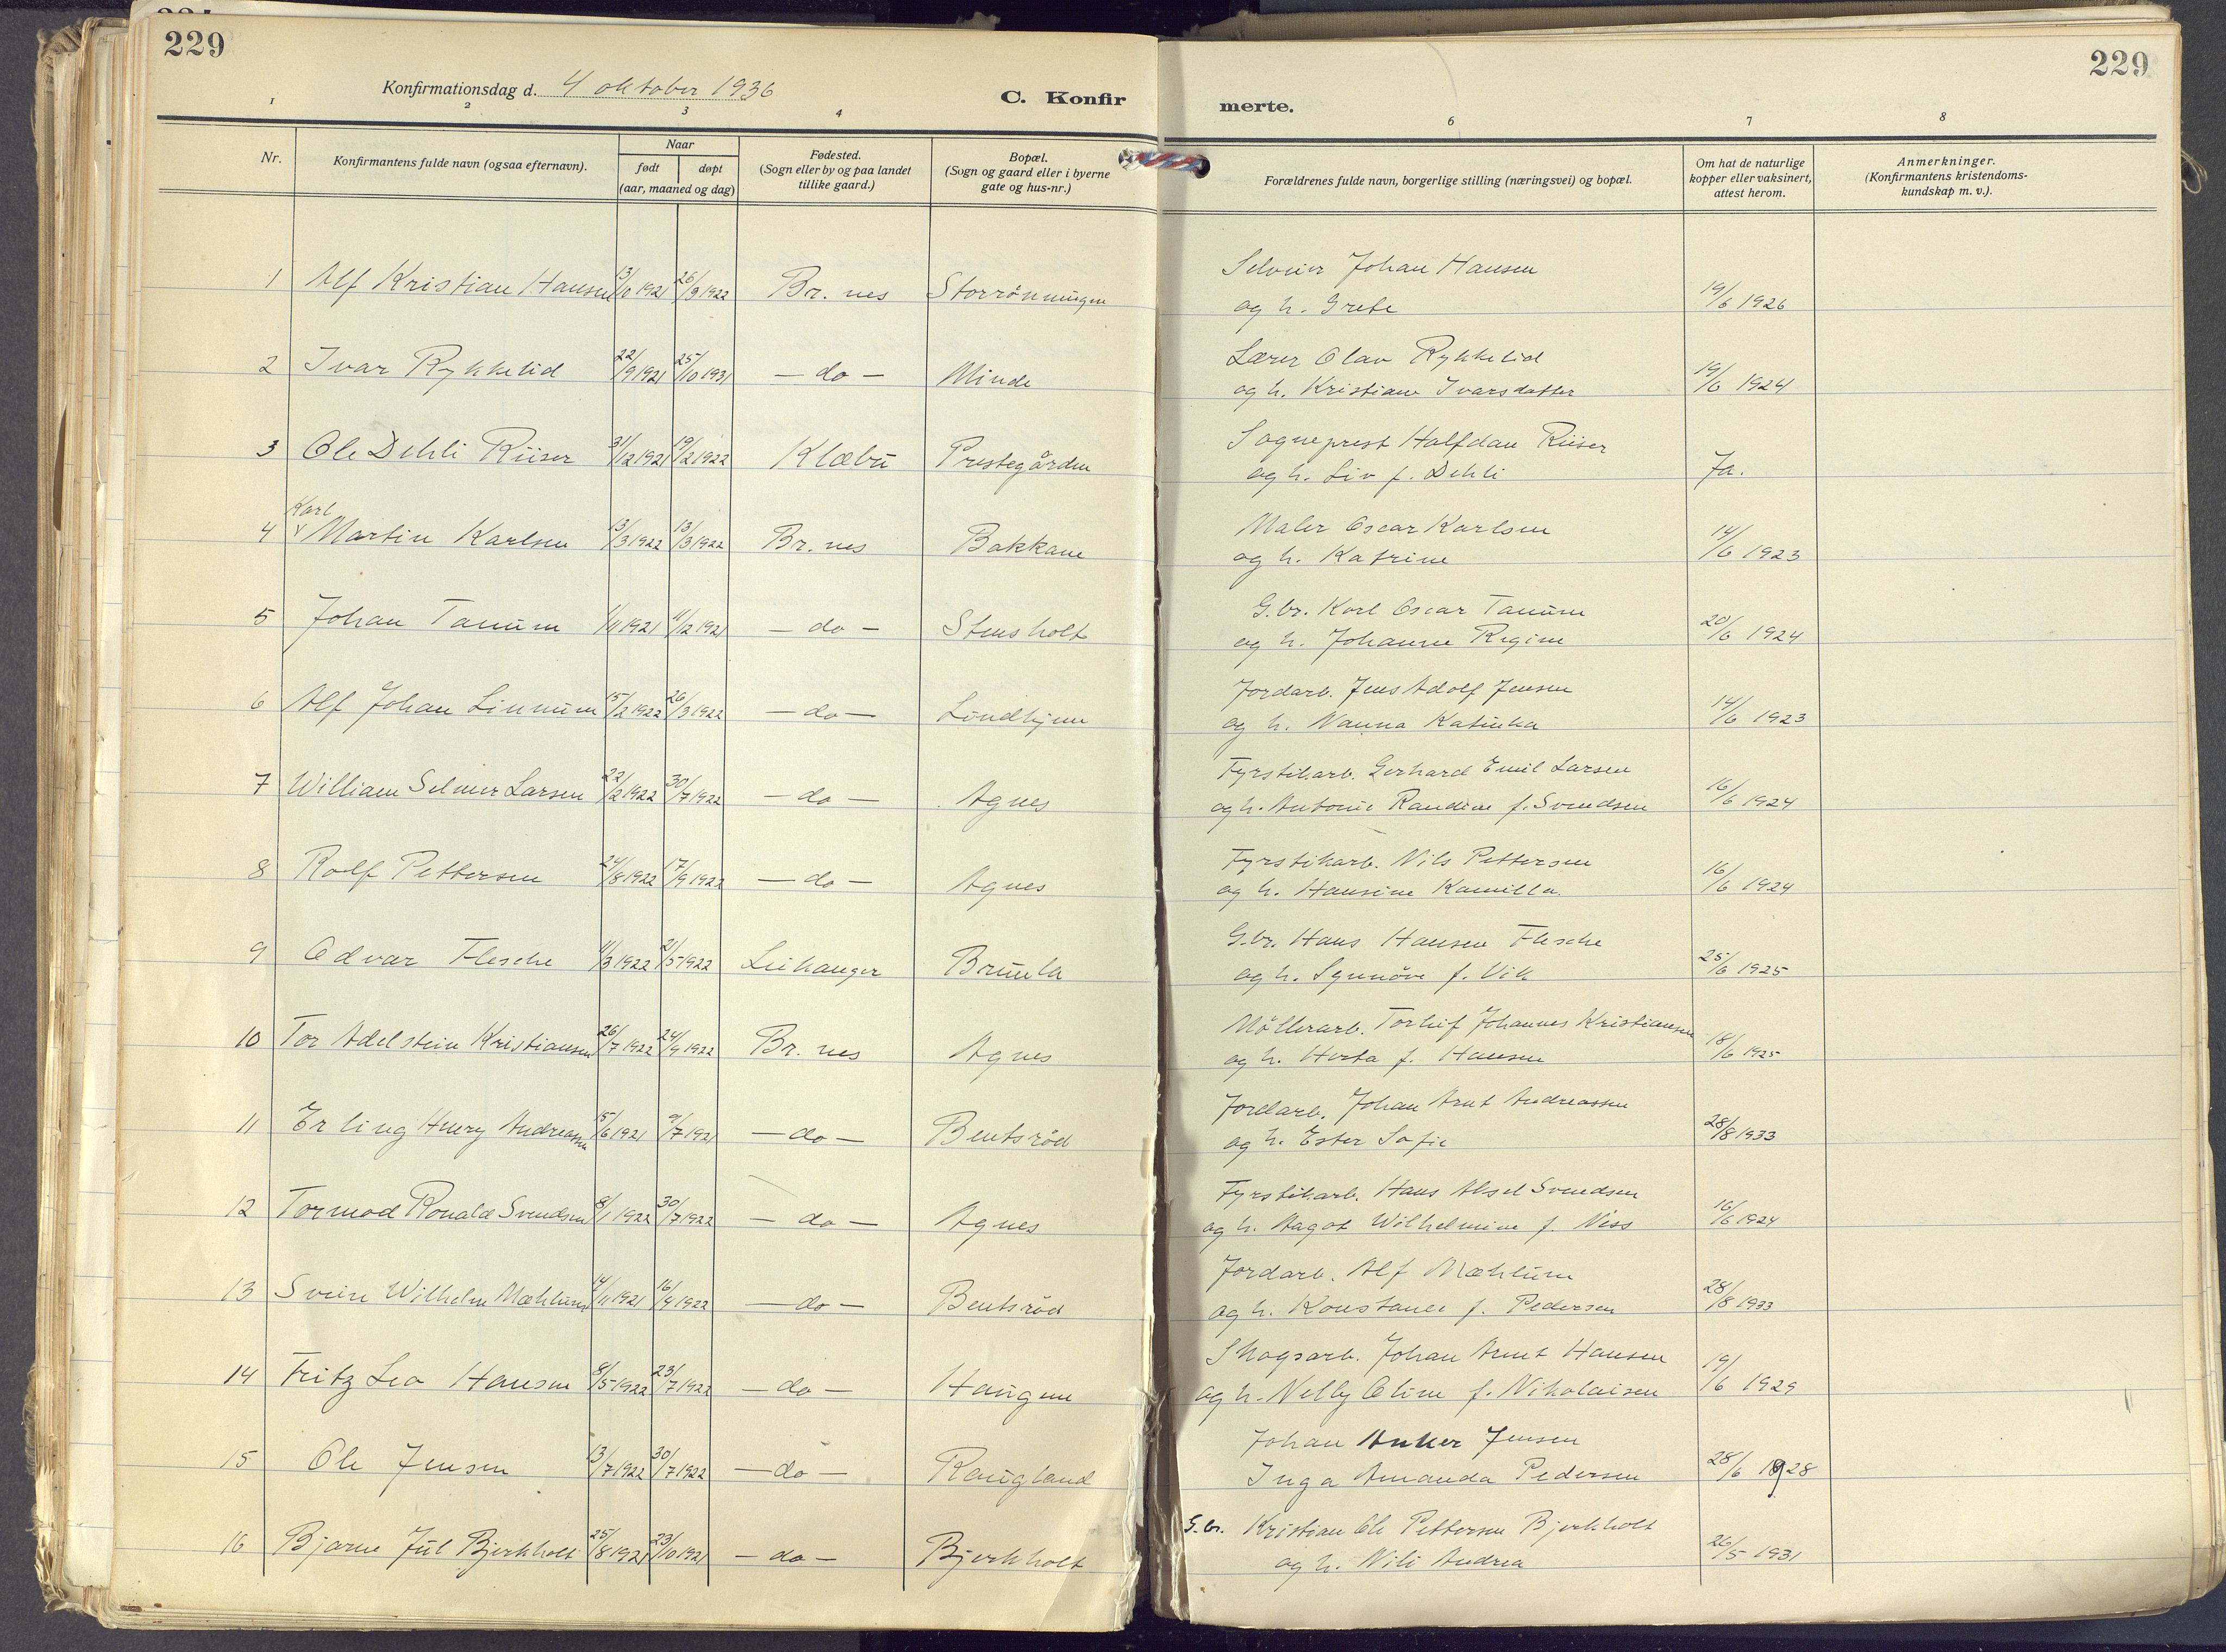 229
229
Konfirmationsdag d. 4 oktober 1936
C. Konfir
merte.
1 2 3 4 6 7 8
Nr.
Konfirmantens fulde navn (ogsaa efternavn).
Naar
født døpt
(aar, maaned og dag)
Fødested.
(Sogn eller by og paa landet
tillike gaard.)
Bopæl.
(Sogn og gaard eller i byerne
gate og hus-nr.)
Forældrenes fulde navn, borgerlige stilling (næringsvei) og bopæl.
Om hat de naturlige
kopper eller vaksinert,
attest herom.
Anmerkninger.
(Konfirmantens kristendoms-
kundskap m. v.).
Johan Hansen
1 Alf Kristian Hansen 13/10 1921 26/3 1922 Br. nes Storrönningen og h. Grete 19/6 1926
Lærer Olav Rykkelid
2 Ivar Rykkelid 22/9 1921 25/10 1931 – do – Minde og h. Kristiane Ivarsdatter 19/6 1924
Sogneprest Halfdan Riiser
3 Ole Dehli Riiser 31/12 1921 19/2 1922 Klæbu Prestegården og h. Liv f. Dehli Ja.
Karl
Maler Oscar Karlsen
4 Martin Karlsen 13/3 1922 13/3 1922 Br. nes Bakkane og h. Katrine 14/6 1923
G.br. Karl Oscar Tanum
5 Johan Tanum 1/11 1921 11/12 1921 – do – Stensholt og h. Johanne Regine 20/6 1924
Jordarb. Jens Adolf Jensen
6 Alf Johan Linnum 15/2 1922 26/3 1922 – do – Lindhjem og h. Nanna Katinka 14/6 1923
Fyrstikarb. Gerhard Emil Larsen
7 William Selmer Larsen 22/2 1922 30/7 1922 – do – Agnes og h. Antonie Randine f. Svendsen 16/6 1924
Fyrstikarb. Nils Pettersen
8 Rolf Pettersen 24/8 1922 17/9 1922 – do – Agnes og h. Hansine Kamilla. 16/6 1924
G.br. Hans Hansen Flesche
9 Odvar Flesche 11/3 1922 21/5 1922 Leikanger Brunla og h. Synnöve f. Vik 25/6 1925
Möllerarb. Torleif Johannes Kristiansen
10 Tor Adelstein Kristiansen 26/7 1922 24/9 1922 Br. nes Agnes og h. Herta f. Hansen 18/6 1925
Jordarb. Johan Arnt Andreassen
11 Erling Henry Andreassen 15/6 1921 9/7 1921 – do – Bentsröd og h. Ester Sofie 28/8 1933
Fyrstikarb. Hans Aksel Svendsen
12 Tormod Ronald Svendsen 8/1 1922 30/7 1922 – do – Agnes og h. Aagot Wilhelmine f. Næss 16/6 1924
Jordarb. Alf Mæhlum
13 Svein Wilhelm Mæhlum 14/11 1921 16/4 1922 – do – Bentsröd og h. Konstance f. Pedersen 28/8 1933
Skogsarb. Johan Arnt Hansen
14 Fritz Leo Hansen 8/5 1922 23/7 1922 – do – Haugen og h. Nelly Oline f. Nikolaisen 19/6 1929
Johan Anker Jensen
15 Ole Jensen 13/7 1922 30/7 1922 – do – Raugland Inga Amanda Pedersen 28/6 1928
G.br. Kristian Ole Pettersen Bjerkholt
16 Bjarne Jul Bjerkholt 25/8 1921 23/10 1921 – do – Bjerkholt og h. Nili Andrea 26/5 1931